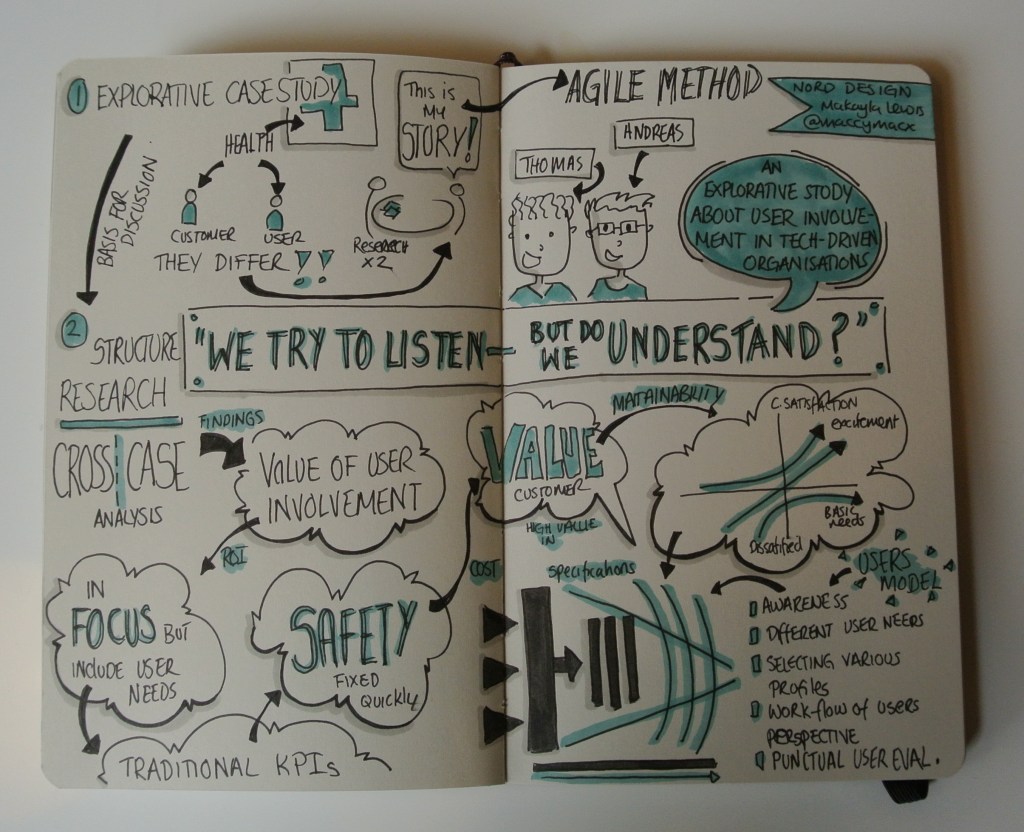 1 EXPLORATIVE CASE STUDY
HEALTH
CUSTOMER
USER
THEY DIFFER!!
BASIS FOR
DISCUSSION.
This is
MY
STORY!
RESEARCH
X2
AGILE METHOD
NORD DESIGN
Makayla Lewis
@maccymacx
ANDREAS
THOMAS
AN
EXPLORATIVE STUDY
ABOUT USER INVOLVE-
MENT IN TECH-DRIVEN
ORGANISATIONS
"WE TRY TO LISTEN - BUT DO
WE UNDERSTAND?"
2 STRUCTURE
RESEARCH
CROSS CASE
ANALYSIS
FINDINGS
VALUE OF USER
INVOLVEMENT
ROI
IN
FOCUS BUT
INCLUDE USER
NEEDS
TRADITIONAL KPIs
SAFETY
FIXED
QUICKLY
COST
VALUE
CUSTOMER
HIGH VALUE
IN
specifications
MATAINABILITY
C. SATISFACTION
excitement
BASIC
NEEDS
Dissatified
USERS
MODEL
AWARENESS
DFFERENT USER NEERS
SELECTING VARIOUS
PROFILES
WORK-FLOW OF USERS
PERSPECTIVE
PUNCTUAL USER EVAL.